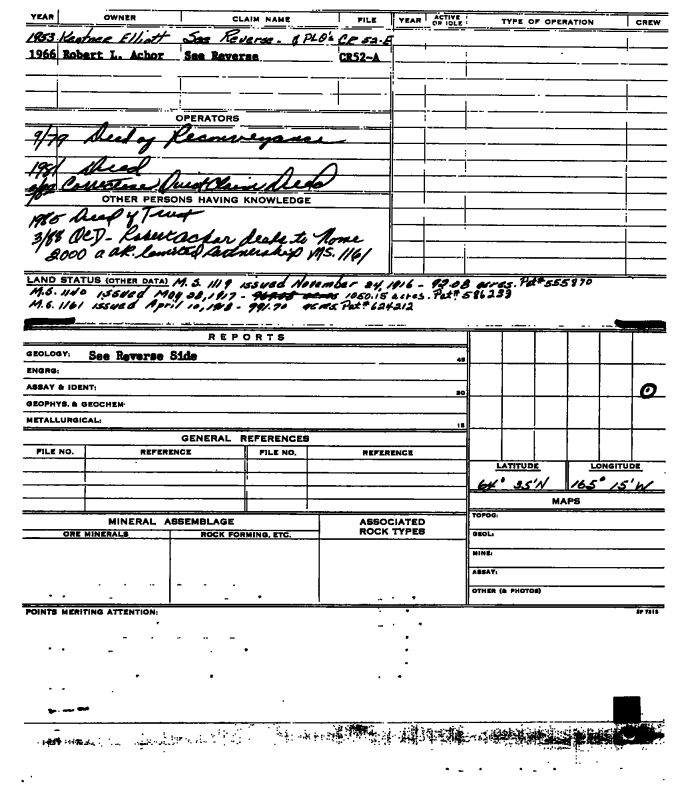 YEAR OWNER CLAIM NAME FILE YEAR ACTIVE OR IDLE TYPE OF OPERATION CREW
1953 Elliott See Reverse. & PLO's CR 52-E
1966 Robert L. Achor See Reverse CR52-A
OPERATORS
9/79 Deed of Reconveyance
1981 Deed
Quit Claim Deed
OTHER PERSONS HAVING KNOWLEDGE
1985 Deed of Trust
3/88 QCD - Robert Achor deals to Nome
2000 a AK. Limited Partnership MS. 1161
LAND STATUS (OTHER DATA) M.S. 1119 issued November 24, 1916 - 92.08 acres. Pat# 555970
M.S. 1140 issued May 08, 1917 - 1050.15 acres. Pat# 586233
M.S. 1161 issued April 10, 1918 - 991.70 acres. Pat# 624212
REPORTS
GEOLOGY: See Reverse Side 45
ENGRG:
ASSAY & IDENT: 30
GEOPHYS. & GEOCHEM.
METALLURGICAL: 15
GENERAL REFERENCES
FILE NO. REFERENCE FILE NO. REFERENCE
LATITUDE LONGITUDE
64° 35'N 165° 15'W
MAPS
MINERAL ASSEMBLAGE ASSOCIATED ROCK TYPES
ORE MINERALS ROCK FORMING, ETC.
TOPOG:
GEOL:
MINE:
ASSAY:
OTHER (& PHOTOS)
POINTS MERITING ATTENTION: